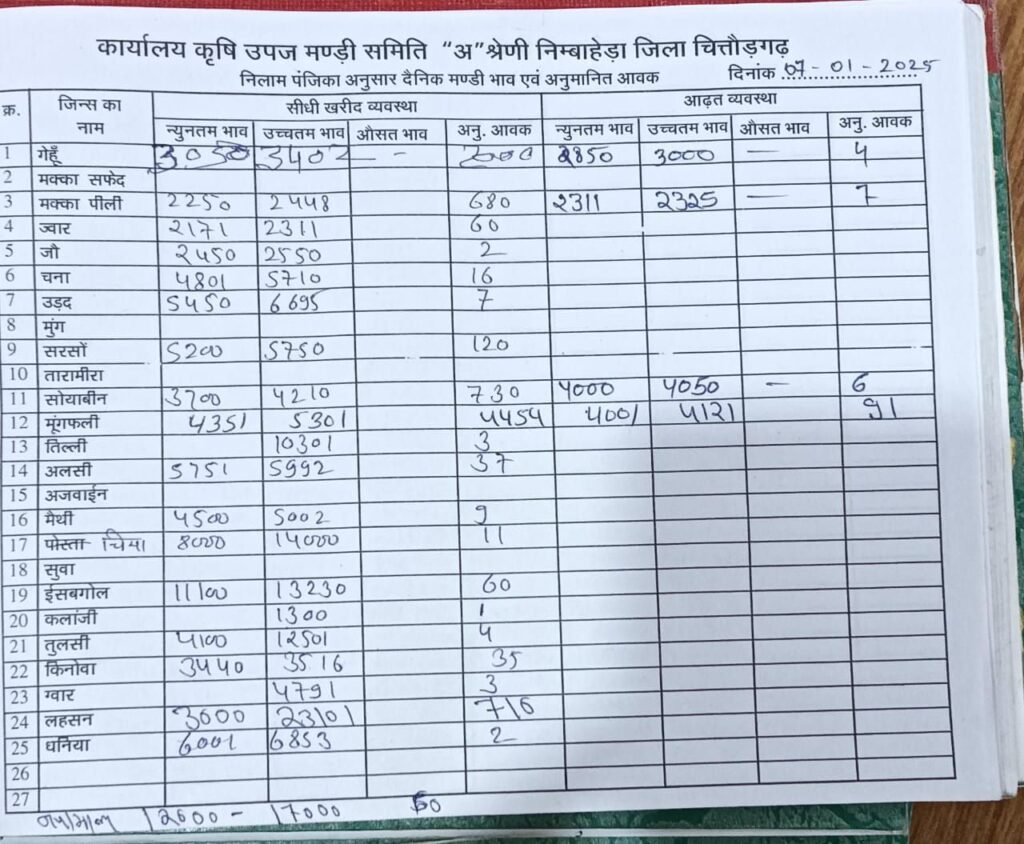 कार्यालय कृषि उपज मण्ड़ी समिति "अ"श्रेणी निम्बाहेड़ा जिला चित्तौड़गढ़
निलाम पंजिका अनुसार दैनिक मण्डी भाव एवं अनुमानित आवक दिनांक 07-01-2025
क्र. जिन्स का नाम सीधी खरीद व्यवस्था आढ़त व्यवस्था
न्युनतम भाव उच्चतम भाव औसत भाव अनु. आवक न्युनतम भाव उच्चतम भाव औसत भाव अनु. आवक
1 गेहूँ 3050 3402 - 2850 3000 — 4
2 मक्का सफेद
3 मक्का पीली 2250 2448 680 2311 2325 — 7
4 ज्वार 2171 2311 60
5 जौ 2450 2550 2
6 चना 4801 5710 16
7 उड़द 5450 6695 7
8 मुंग
9 सरसों 5200 5750 120
10 तारामीरा
11 सोयाबीन 3700 4210 730 4000 4050 — 6
12 मूंगफली 4351 5301 4454 4001 4121 91
13 तिल्ली 10301 3
14 अलसी 5751 5992 37
15 अजवाईन
16 मैथी 4500 5002 9
17 पोस्ता चिया 8000 14000 11
18 सुवा
19 ईसबगोल 11100 13230 60
20 कलांजी 1300 1
21 तुलसी 4100 12501 4
22 किनोवा 3440 3516 35
23 ग्वार 4791 3
24 लहसन 3000 23101 716
25 धनिया 6001 6853 2
26
27
12600 - 17000 60